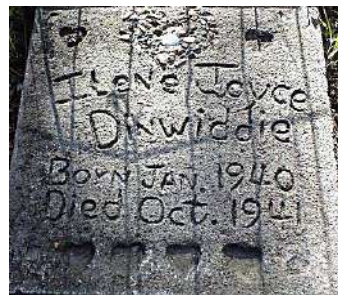 Ilene Joyce
Dinwiddie
Born Jan. 1940
Died Oct. 1941